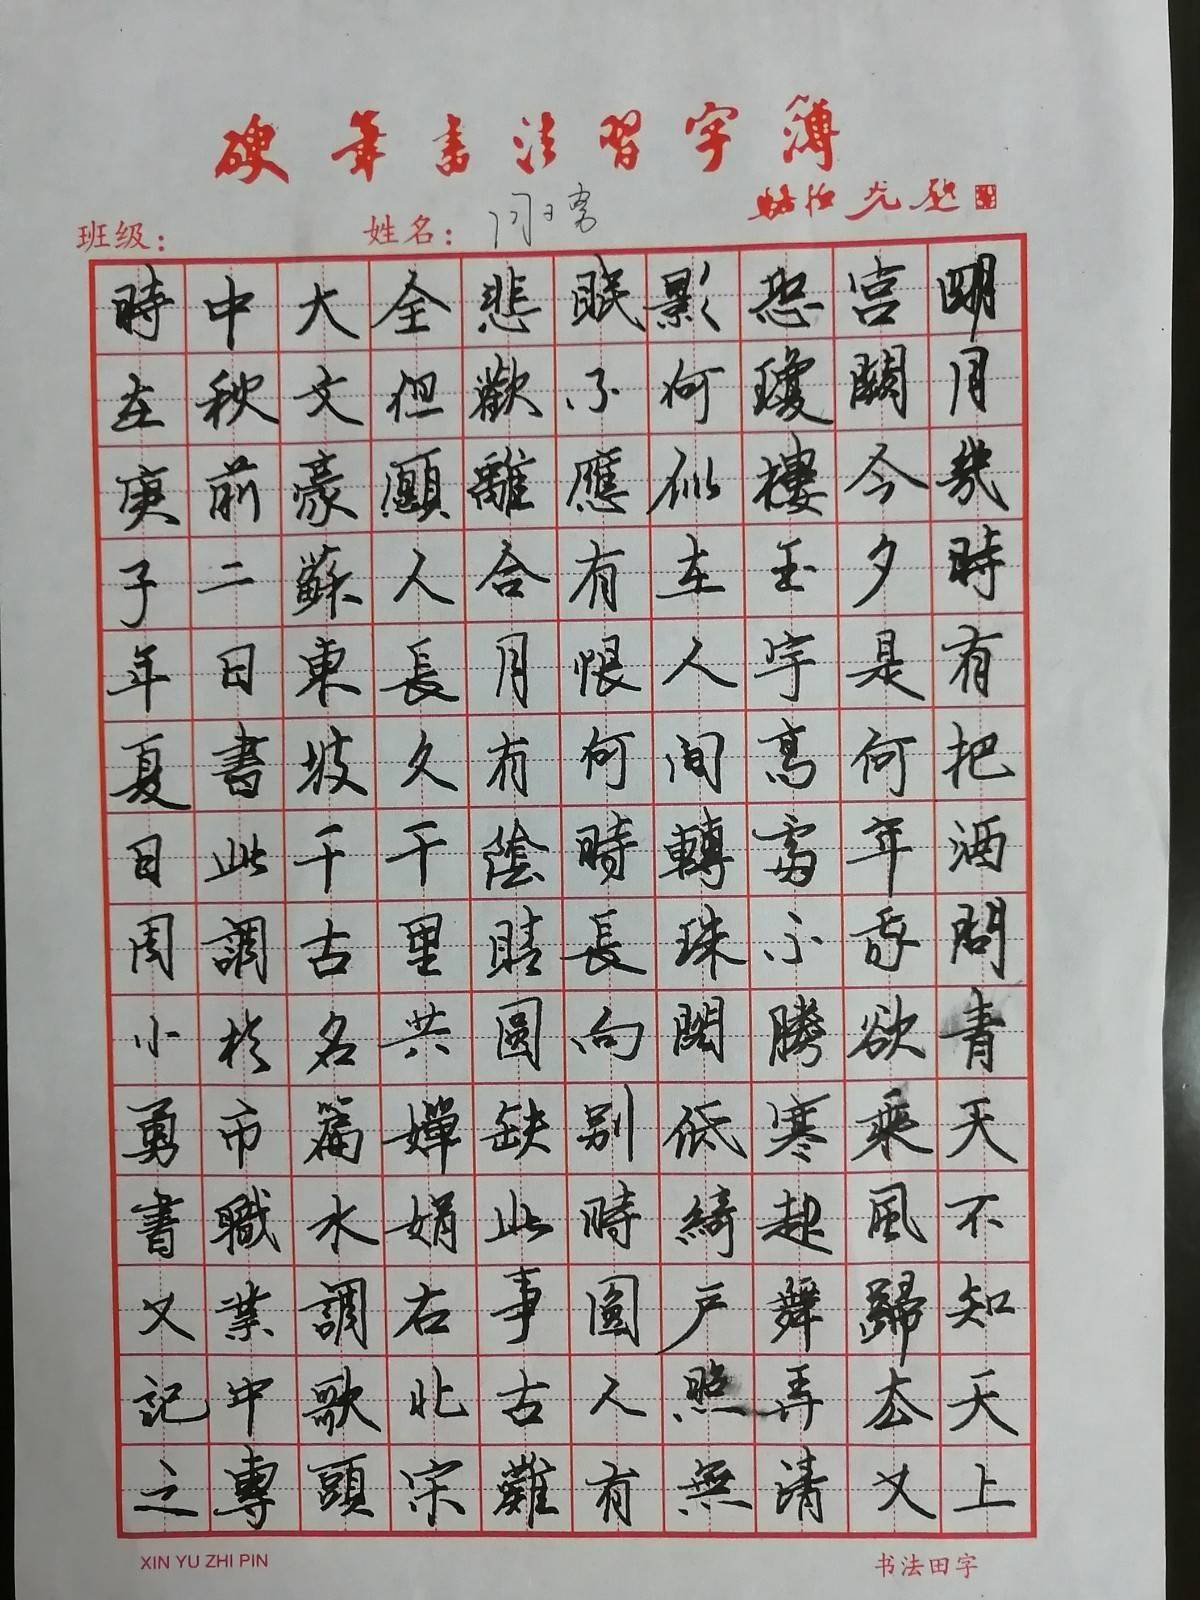 硬筆書法習字簿
班级：
姓名：周小勇
明月幾時有把酒問青天不知天上
宮闕今夕是何年我欲乘風歸去又
恐瓊樓玉宇高處不勝寒起舞弄清
影何似在人間轉珠閣低綺戶照無
眠不應有恨何時長向別時圓人有
悲歡離合月有陰晴圓缺此事古難
全但願人長久千里共嬋娟右北宋
大文豪蘇東坡千古名篇水調歌頭
中秋前二日書此調於市職業中專
時在庚子年夏日周小勇書又記之
XIN YU ZHI PIN
书法田字